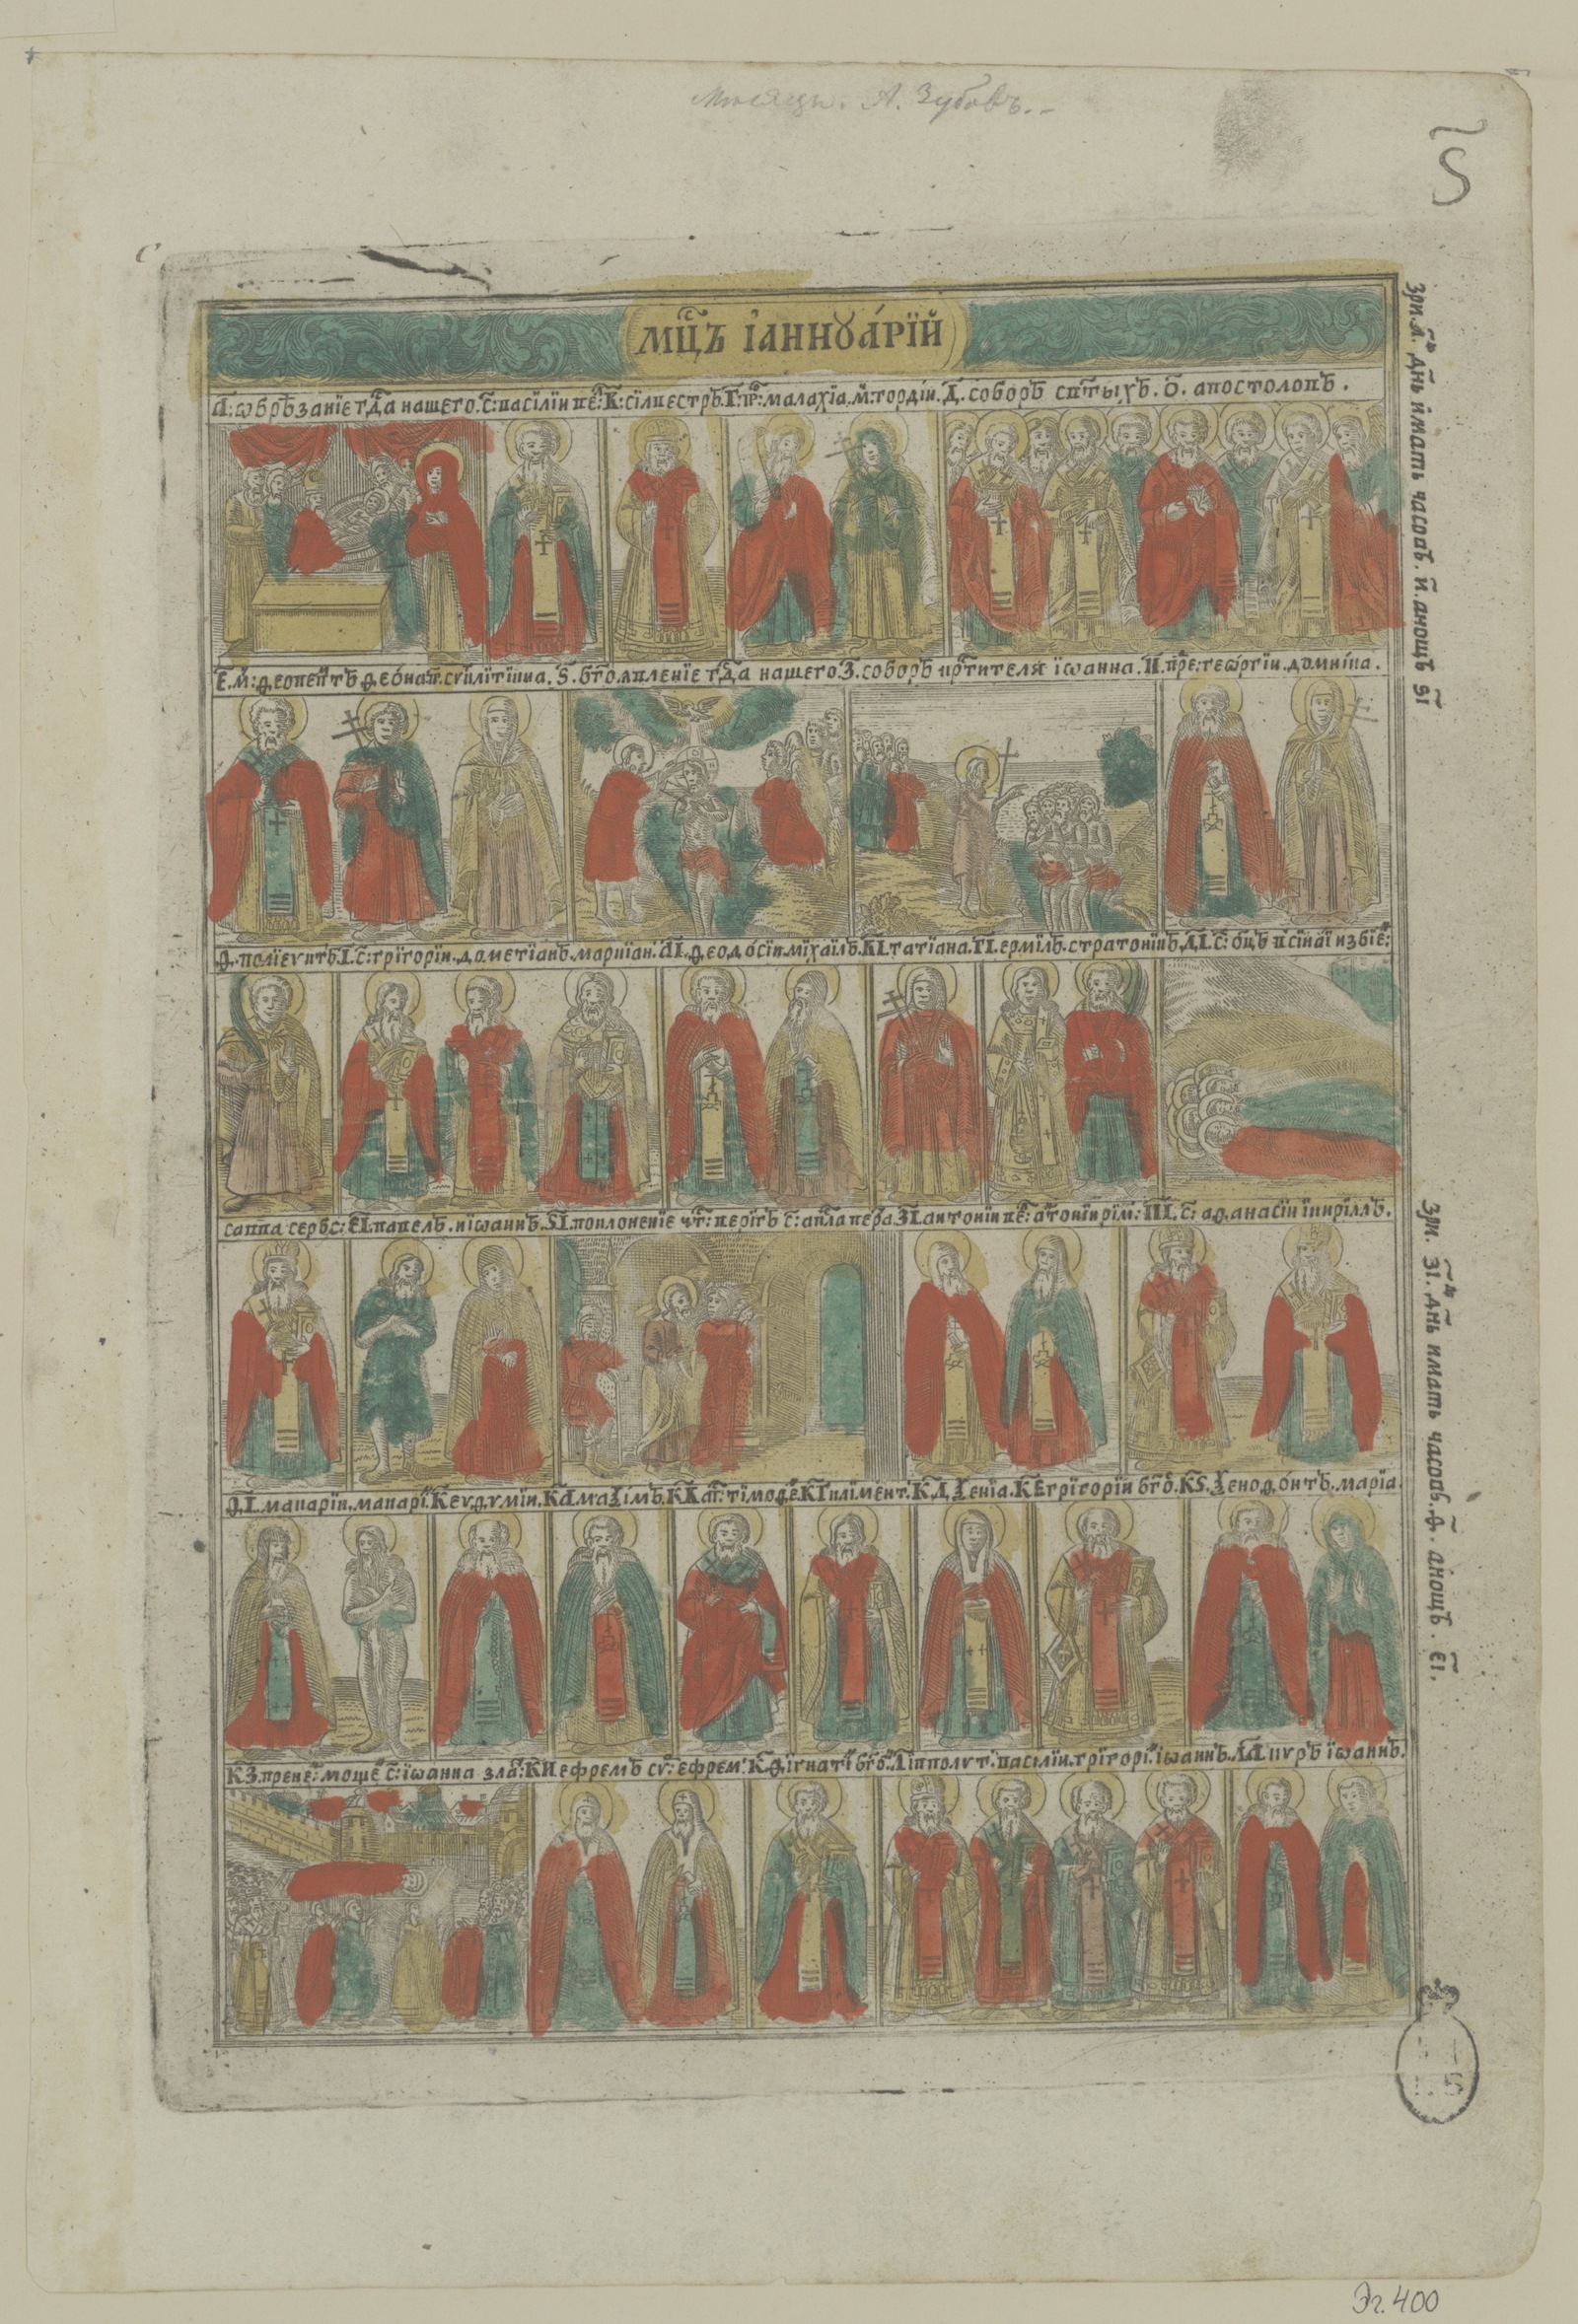 А. Зубовъ.
Ѕ
МЦ҃Ъ І҆АННꙊА́РЇЙ
А҃: ѡбрѣзанїе гд҃а нашего. с: васілїи ве: В҃: сілвестръ. Г҃. пр: малахїа. м: гордїи. Д҃. соборъ ст҃ыхъ. О҃. апостоловъ.
Е҃. м: ѳеопентъ ѳеѡна п. сѵнклїтїкиа. Ѕ҃. бг҃оявленїе гд҃а нашего З҃. соборъ кр҃тителя їѡанна. И҃. пре: геѡ́ргїи. домніка.
Ѳ҃. полїевктъ. І҃. с: грїгорїи. дометїанъ. маркїан. АІ҃. ѳеодо́сїи. мїхаілъ. ВІ҃. татїана. ГІ҃. ермілъ. стратонікъ. ДІ҃. с: оц҃ъ в сіна́и избіе:
савва сербс: ЕІ҃. павелъ. иїѡаннъ. ЅІ҃. поклоненїе чт: верігъ с: апл҃а петра ЗІ҃. антонїи ве: а҆то́нїи рїм: ИІ҃. с: аѳанасїи ікирїллъ.
ѲІ҃. макарїи. макарї. К҃. еѵѳѵмїи. КА҃. маѯімъ. КВ҃. ап: тімоѳе КГ҃ клімент. КД҃ ѯенїа. КЕ҃ грїгорїи бг҃о. КЅ҃. ѯеноѳо́нтъ. марїа.
КЗ҃. пренес: моще с: їѡанна зла: КИ҃ ефремъ сѵ: ефрем. КѲ҃. їгнатї бг҃о. Л҃ їпполѵт. васілїи. грїгорї. їѡаннъ. ЛА҃ кѵръ їѡаннъ.
Зри. А҃. дн҃ь и́мать часовъ. И҃. анощъ ЅІ҃
Зри. ЗІ҃. дн҃ь имать часовъ. Ѳ҃. анощъ. ЕІ҃.
Эг. 400